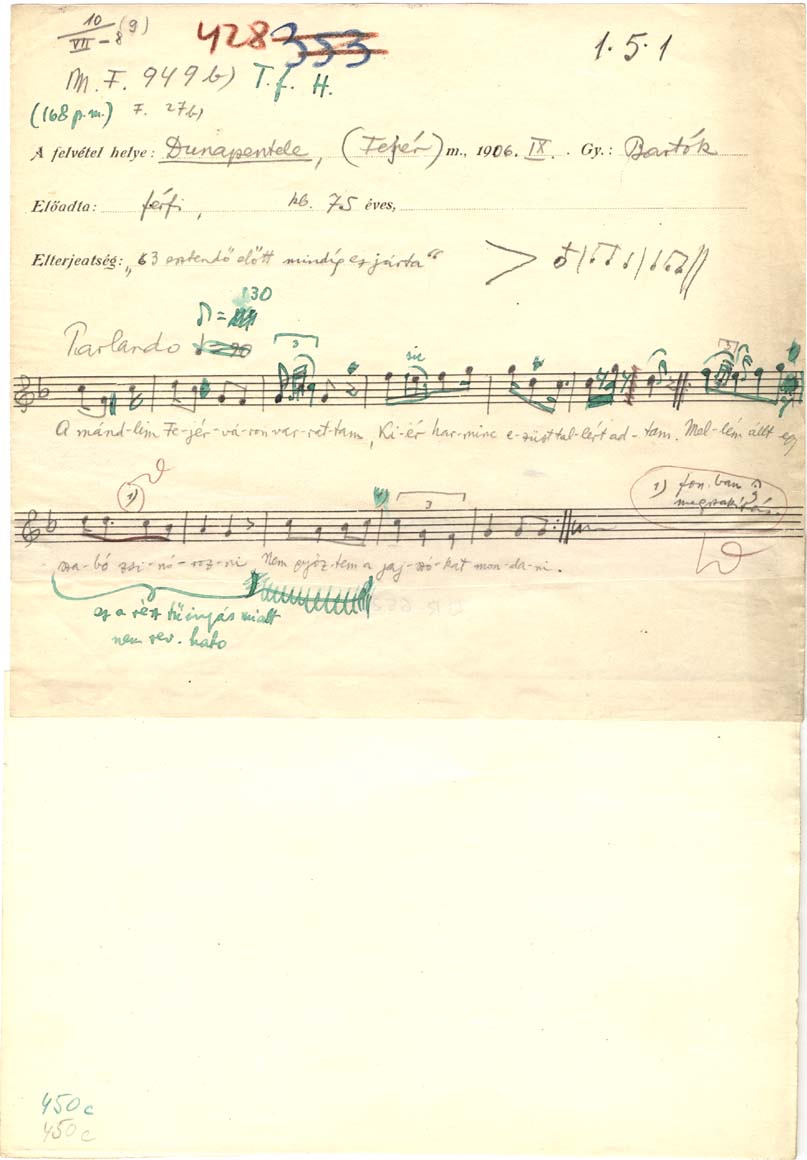 10 (9)
VII-8
428 353
1.5.1
M. F. 949 b) T. f. H.
(168 p.m.) F. 27 b)
A felvétel helye: Dunapentele, (Fejér) m., 1906. IX. Gy.: Bartók
Előadta: férfi, kb. 75 éves,
Elterjeatség: „63 esztendő előtt mindíg ez járta“
130
Parlando
3
sic
3
A mánd-lim Fe-jér-vá-ron var-rat-tam, Ki-ér har-minc e-züst tal-lért ad-tam. Mel-lém állt egy
1)
3
1) fon.ban
szá-bó zsi-nó-roz-ni Nem győz-tem a jaj-szó-kat mon-da-ni.
ez a rész tűingás miatt
nem rev. ható
450c
450c